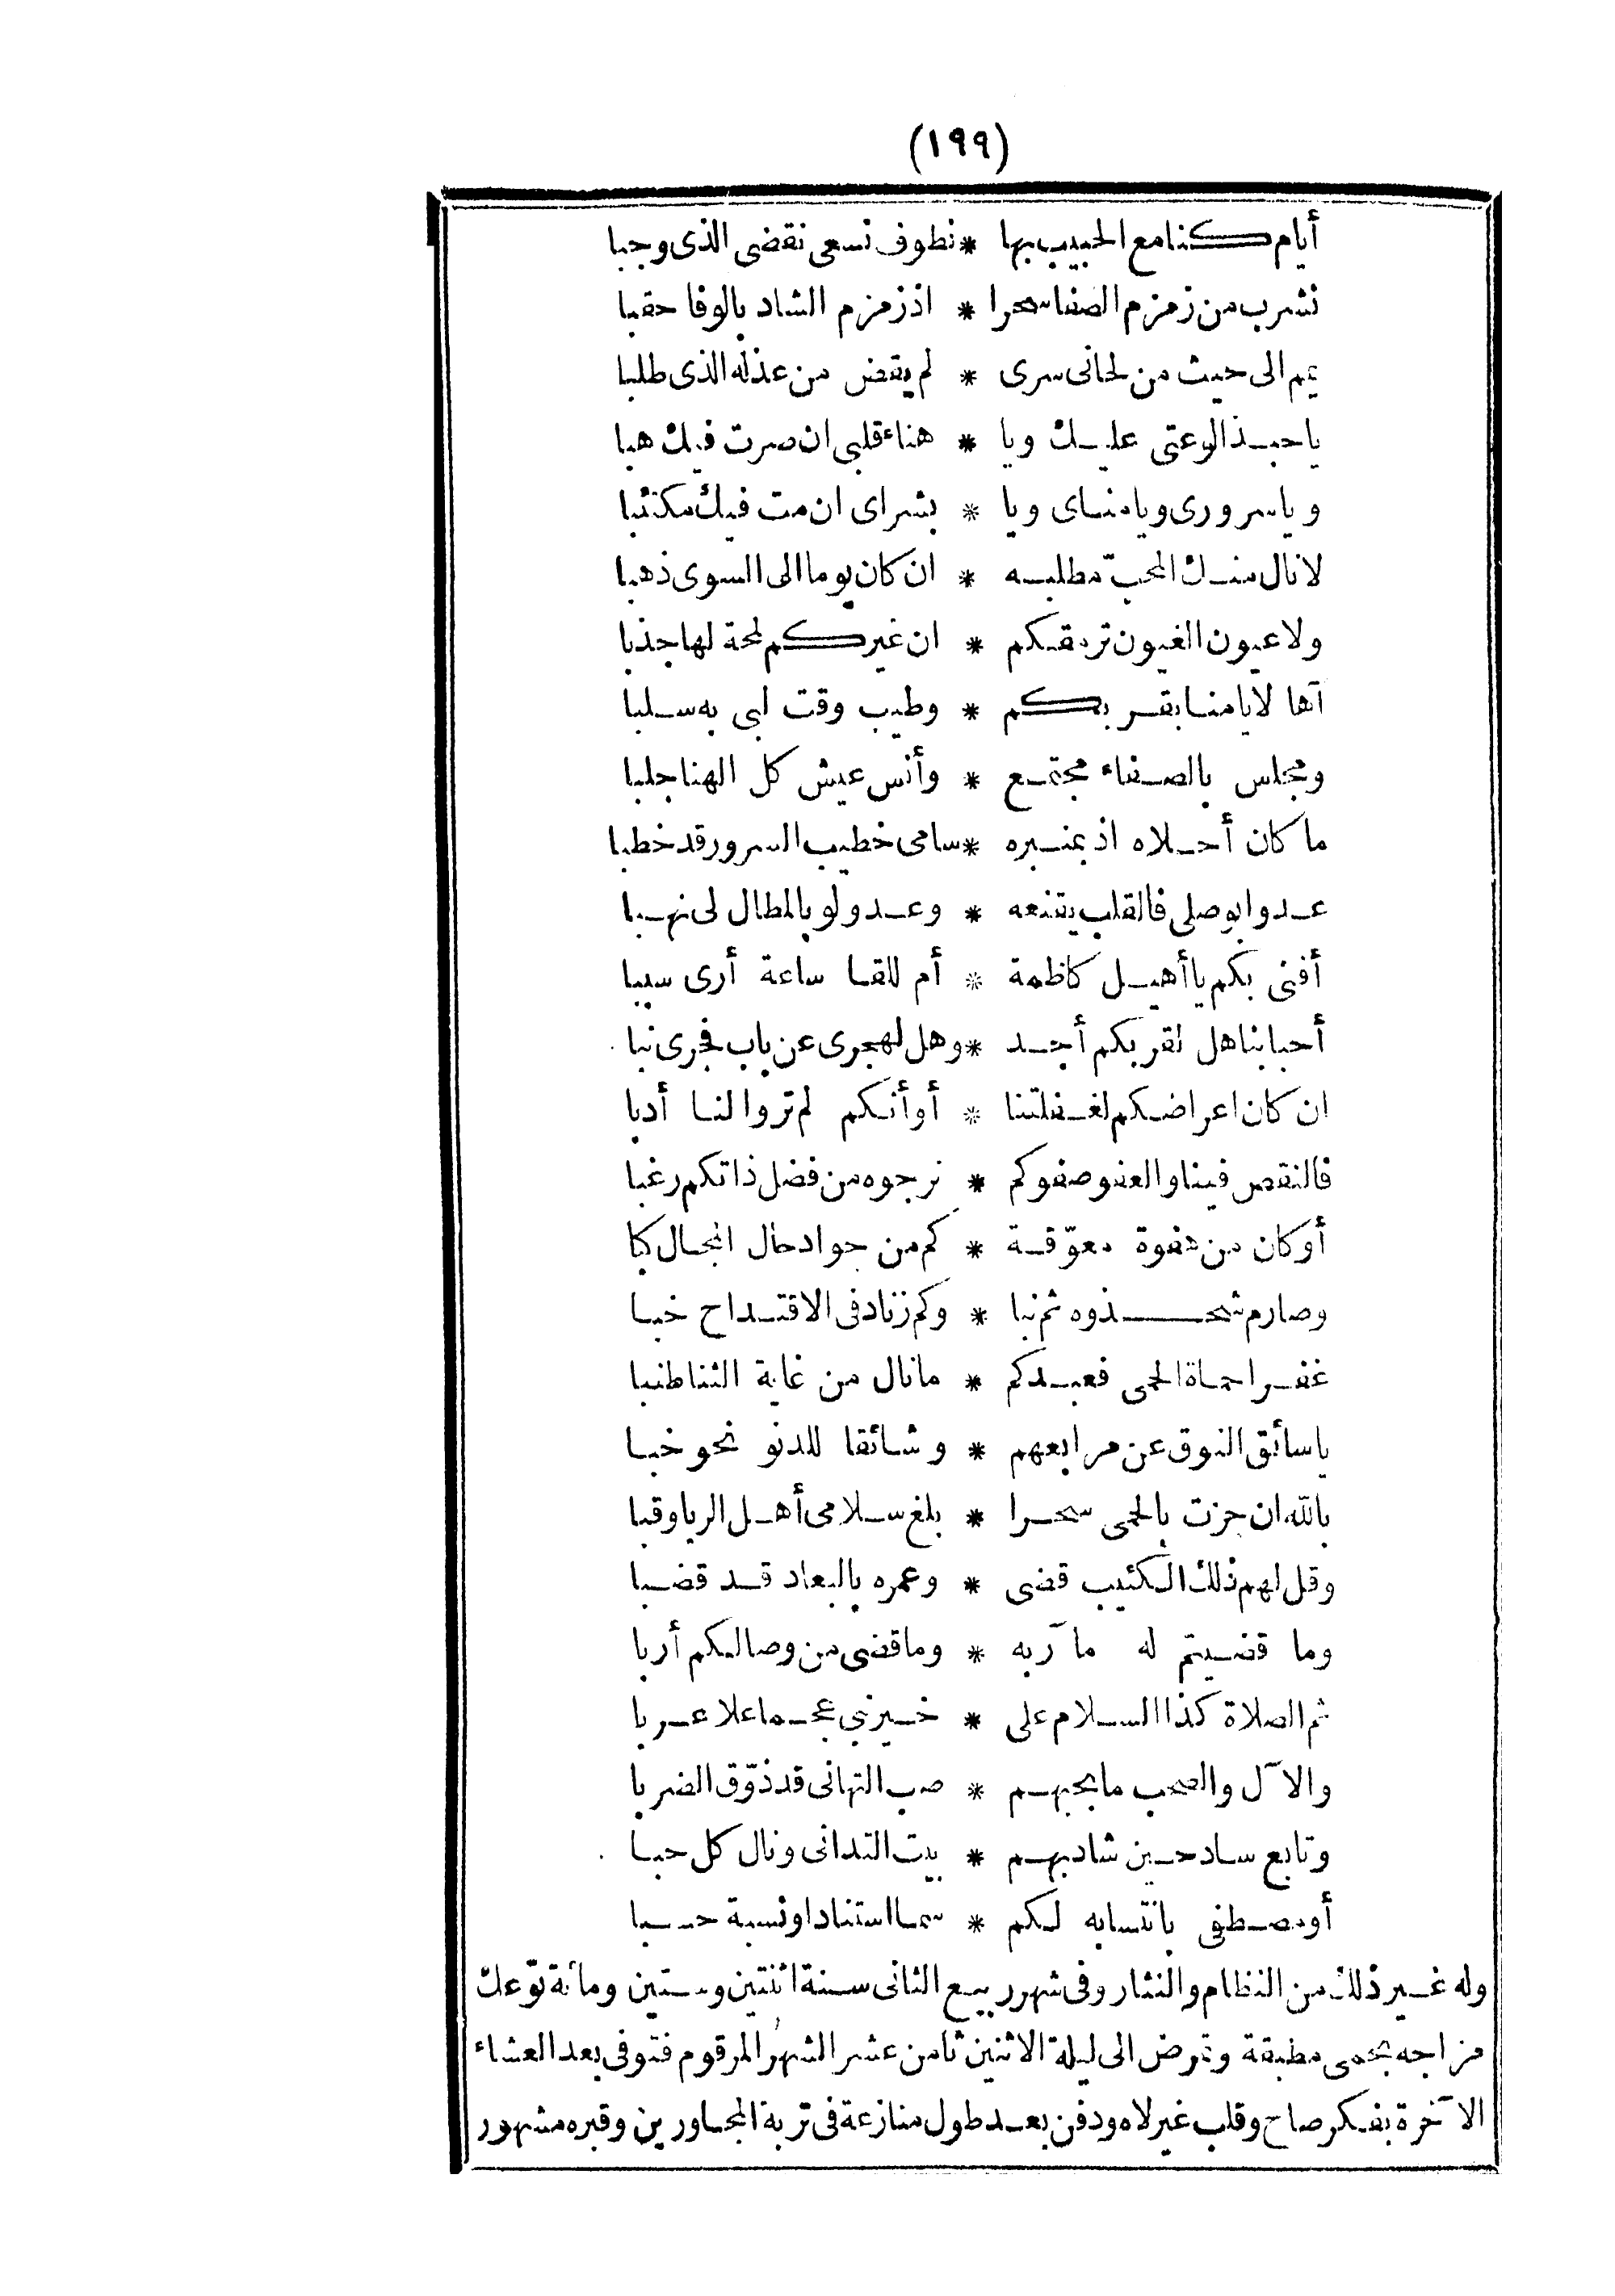 (١٩٩)
أيام كنا مع الحبيب بها * نطوف نسعى نقضى الذى وجبا
نشرب من زمزم الصفا سحرا * اذ زمزم الشاد بالوفا حقبا
يمم الى حيث من لحانى سرى * لم يقض من عذله الذى طلبا
يا حبذا لوعتى عليك ويا * هناء قلبى ان صرت فيك هبا
ويا سرورى ويا مناى ويا * بشراى ان مت فيك مكتئبا
لا نال منك المحبّ مطلبه * ان كان يوما الى السوى ذهبا
ولا عيون العيون ترمقكم * ان غيركم لمحة لها جذبا
آها لايامنا بقربكم * وطيب وقت لبى به سلبا
ومجلس بالصفاء مجتمع * وأنس عيش كل الهنا جلبا
ما كان أحلاه اذ بمنبره * سامى خطيب السرور قد خطبا
عدوا بوصلى فالقلب يقنعه * وعد ولو بالمطال لى نهبا
أفنى بكم يا أهيل كاظمة * أم للقا ساعة أرى سببا
أحبابنا هل لقربكم أجد * وهل لهجرى عن باب فجرى نبا
ان كان اعراضكم لغفلتنا * أو أنكم لم تروا لنا أدبا
فالنقص فينا والعفو صفوكم * نرجوه من فضل ذاتكم رغبا
أو كان من هفوة معوّقة * كم من جواد حال المجال كبا
وصارم شحذوه ثم نبا * وكم زناد فى الاقتداح خبا
غفرا حماة الحمى فعبدكم * ما نال من غاية الثنا طنبا
يا سائق النوق عن مرابعهم * وشائقا للدنو نحو خبا
بالله ان جزت بالحمى سحرا * بلغ سلامى أهل الربا وقبا
وقل لهم ذلك الكئيب قضى * وعمره بالبعاد قد قضبا
وما قضيتم له مآربه * وما قضى من وصالكم أربا
ثم الصلاة كذا السلام على * خير نبى عجما علا عربا
والآل والصحب ما بحبهم * صب التهانى قد ذوّق الضربا
وتابع ساد حين شاد بهم * بيت التدانى ونال كل حبا
أو مصطفى بانتسابه لكم * سما استنادا ونسبة حسبا
وله غير ذلك من النظام والنثار وفى شهر ربيع الثانى سنة اثنتين وستين ومائة توّعك
مزاجه بحمى مطبقة وتمرض الى ليلة الاثنين ثامن عشر الشهر المرقوم فتوفى بعد العشاء
الآخرة بفكر صاح وقلب غير لاه ودفن بعد طول منازعة فى تربة المجاورين وقبره مشهور